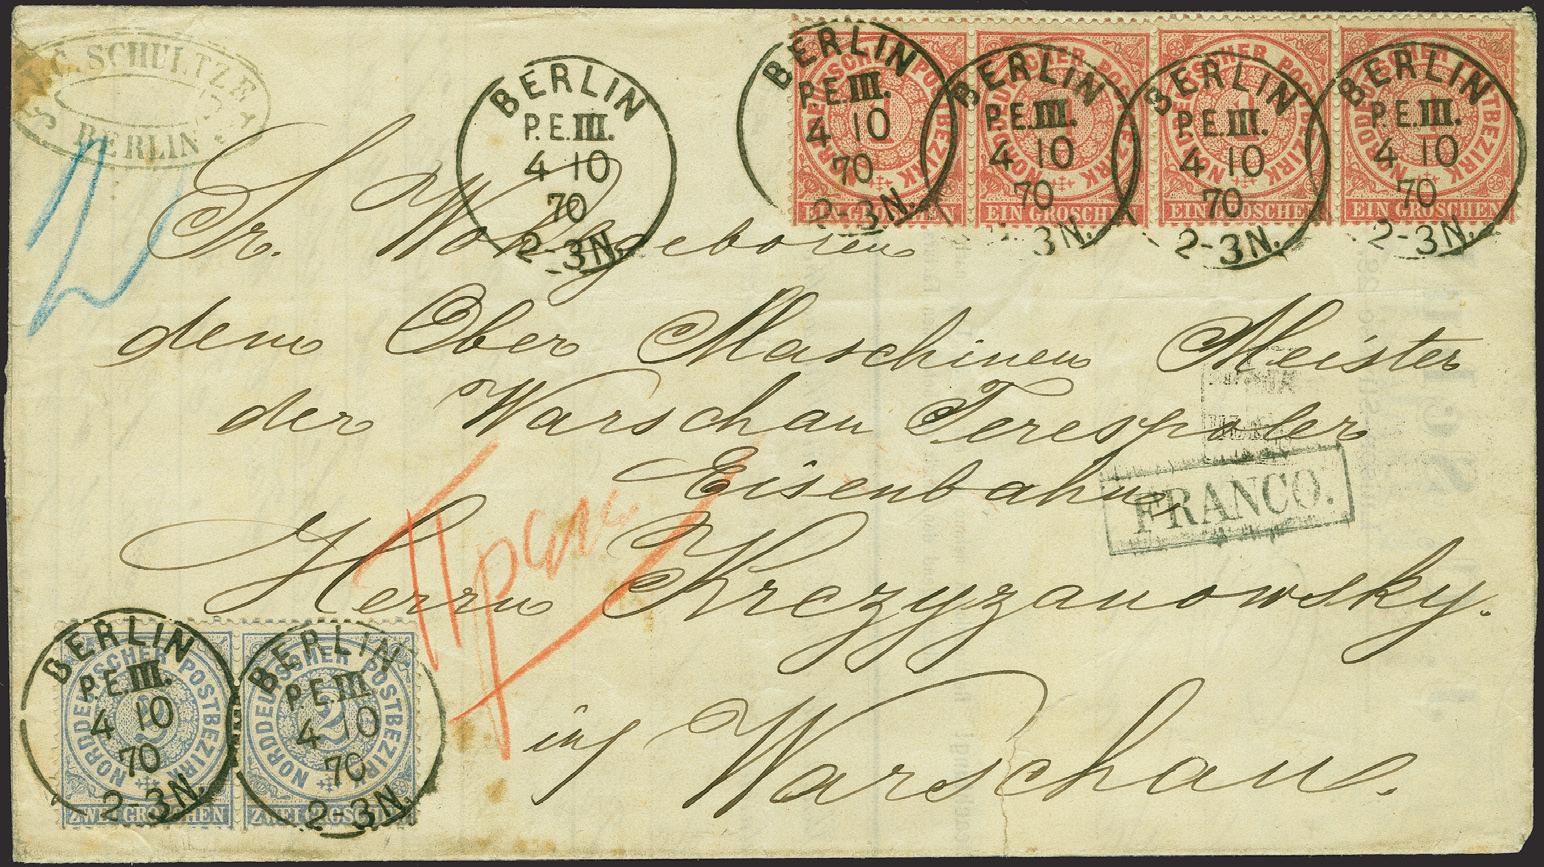 J. C. SCHULTZE
BERLIN
2
BERLIN
P.E.III.
4 10
70
2-3N.
BERLIN
P.E.III.
4 10
70
2-3N.
BERLIN
P.E.III.
4 10
70
3N.
BERLIN
P.E.III.
4 10
70
2-3N.
BERLIN
P.E.III.
4 10
70
2-3N.
NORDDEUTSCHER POSTBEZIRK
1
EIN GROSCHEN
NORDDEUTSCHER POSTBEZIRK
1
EIN GROSCHEN
NORDDEUTSCHER POSTBEZIRK
1
EIN GROSCHEN
NORDDEUTSCHER POSTBEZIRK
1
EIN GROSCHEN
Sr. Wohlgeboren
dem Ober Maschinen Meister
der Warschau Terespoler
Eisenbahn
FRANCO.
Herrn Krczyzanowsky.
in Warschau.
BERLIN
P.E.III.
4 10
70
2-3N.
BERLIN
P.E.III
4 10
70
2-3N.
NORDDEUTSCHER POSTBEZIRK
2
ZWEI GROSCHEN
NORDDEUTSCHER POSTBEZIRK
2
ZWEI GROSCHEN